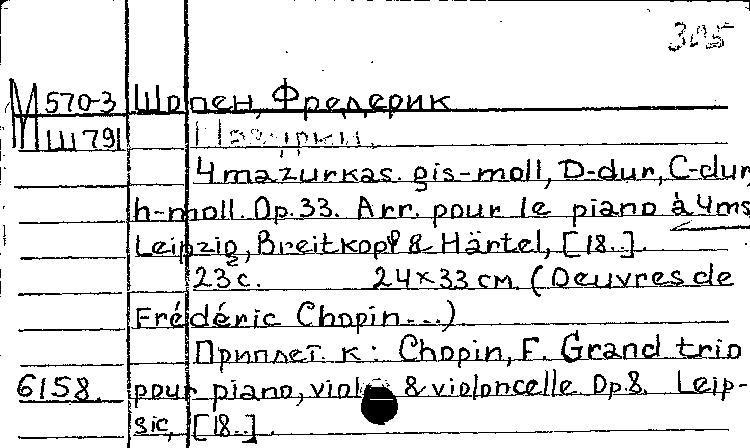 305
М 570-3 Шопен, Фредерик
Ш 791 Мазурки.
4 mazurkas. gis-moll, D-dur, C-dur,
h-moll. Op. 33. Arr. pour le piano à 4 ms
Leipzig, Breitkopf & Härtel, [18..].
23 с. 24×33 см. (Oeuvres de
Frédéric Chopin...)
Приплет. к: Chopin, F. Grand trio
6158. pour piano, violon & violoncelle Op. 8. Leip-
sic, [18..]